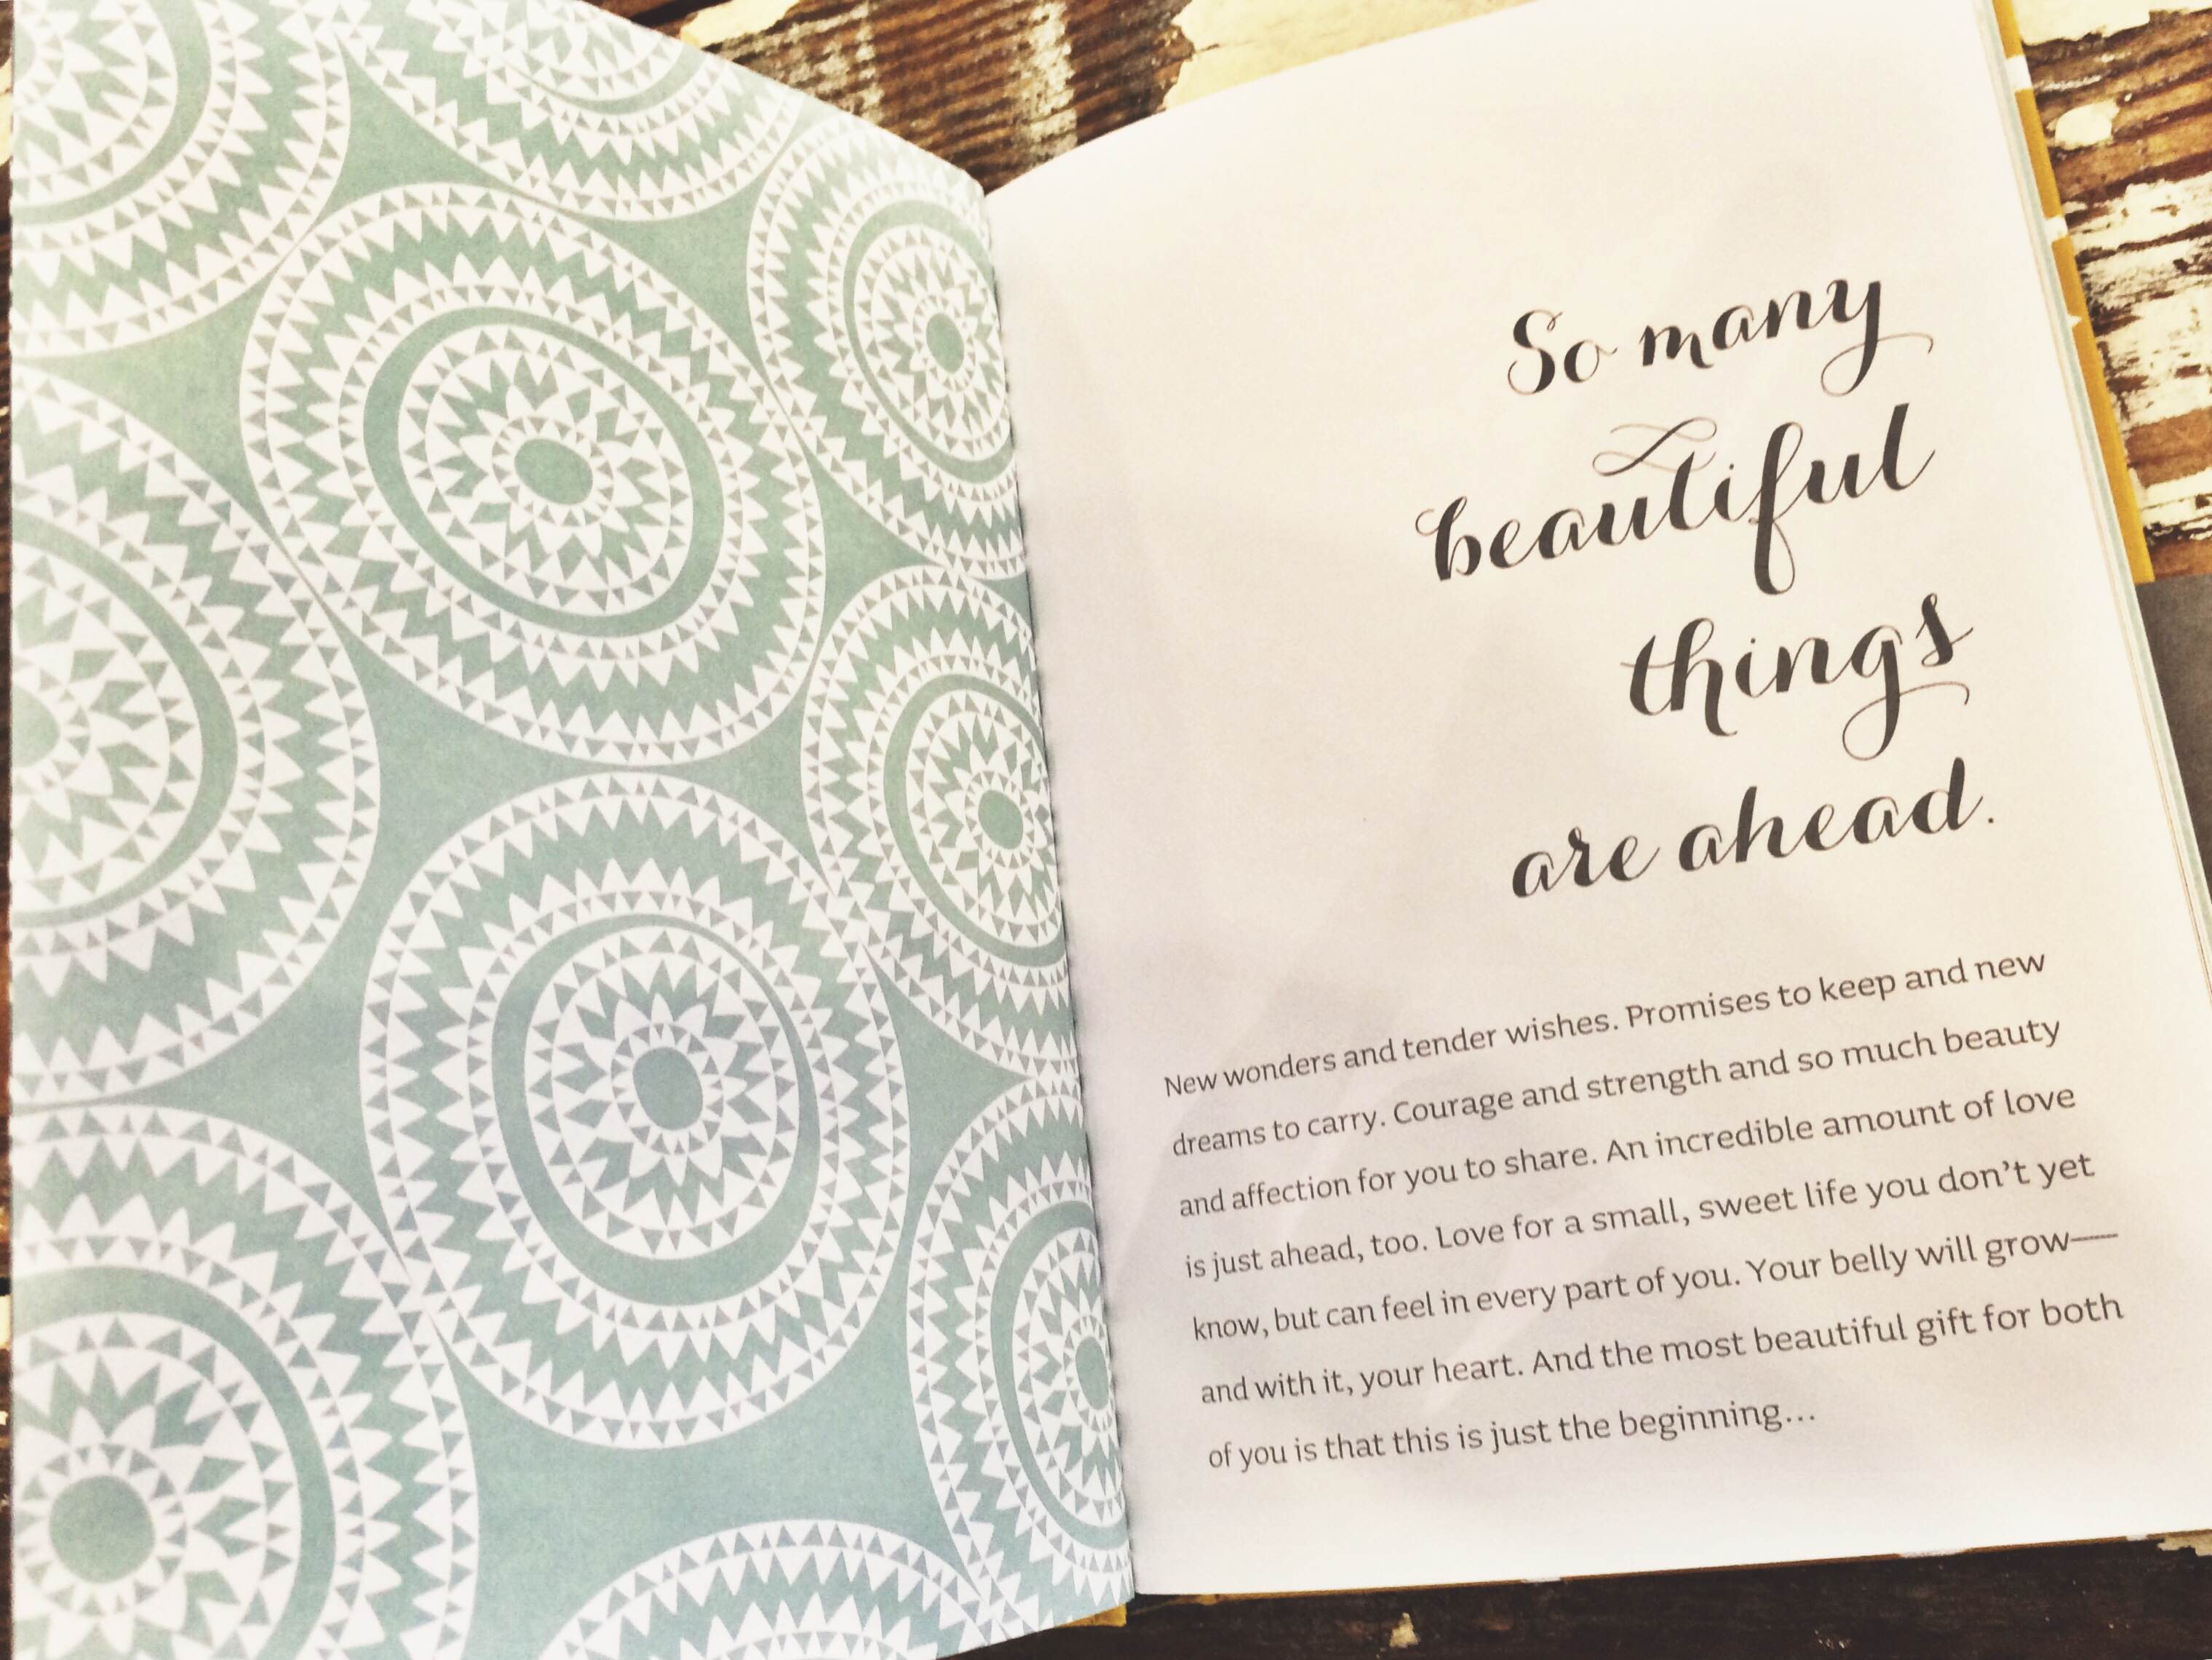 So many
beautiful
things
are ahead.
New wonders and tender wishes. Promises to keep and new
dreams to carry. Courage and strength and so much beauty
and affection for you to share. An incredible amount of love
is just ahead, too. Love for a small, sweet life you don't yet
know, but can feel in every part of you. Your belly will grow—
and with it, your heart. And the most beautiful gift for both
of you is that this is just the beginning...